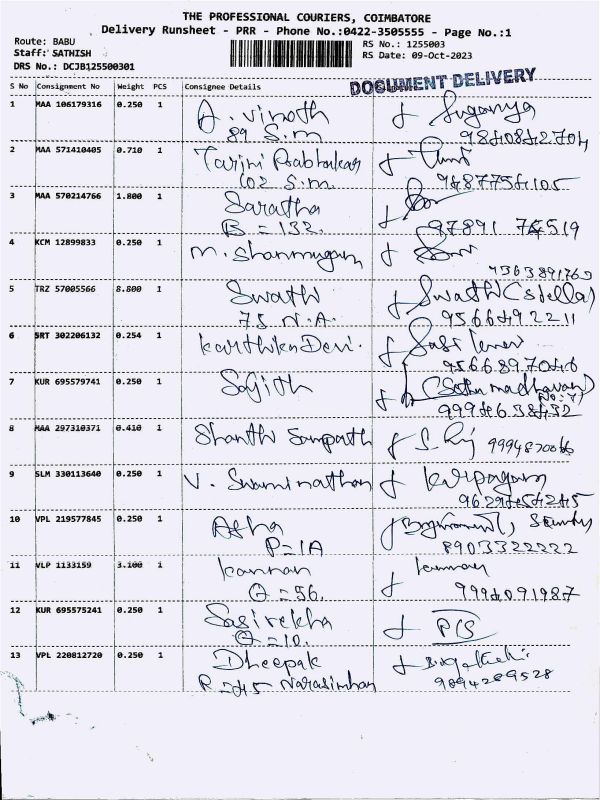 THE PROFESSIONAL COURIERS, COIMBATORE
Delivery Runsheet - PRR - Phone No.:0422-3505555 - Page No.:1
Route: BABU RS No.: 1255003
Staff: SATHISH RS Date: 09-Oct-2023
DRS No.: DCJB125500301
DOCUMENT DELIVERY
S No Consignment No Weight PCS Consignee Details
1 MAA 106179316 0.250 1 A. Vinoth Suganya
89 S.m
2 MAA 571410405 0.710 1 Tarjni Prabhakar
102 S.m.
3 MAA 570214766 1.800 1 Saratha
B = 132.
4 KCM 12899833 0.250 1 M. Shanmugam
7303891760
5 TRZ 57005566 8.800 1 Swathi Swathi (stella)
75 N.A. 9566492211
6 SRT 302206132 0.254 1 Karthika Devi.
9566897046
7 KUR 695579741 0.250 1 Sajith (Sethu madhavan)
9994638432
8 MAA 297310371 0.410 1 Shanthi Sampath 9994870066
9 SLM 330113640 0.250 1 V. Swaminathan Karpagam
9629454245
10 VPL 219577845 0.250 1 Asha
P=1A 8903322222
11 VLP 1133159 3.100 1 Kannan
Q = 56. 9994091987
12 KUR 695575241 0.250 1 Sasirekha P/S
Q = 10.
13 VPL 220812720 0.250 1 Dheepak
R = 45 Narasimhan 9894289528